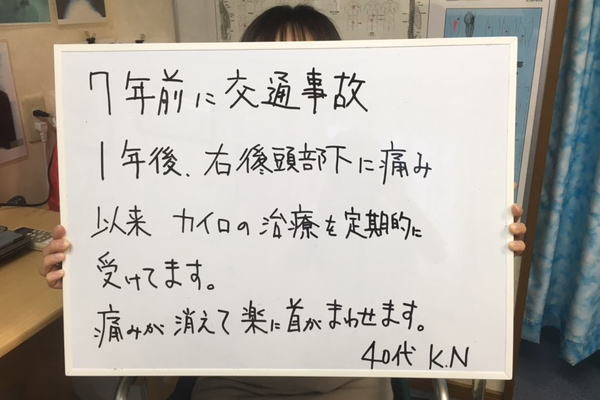 7年前に交通事故
1年後、右後頭部下に痛み
以来 カイロの治療を定期的に
受けてます。
痛みが消えて楽に首がまわせます。
40代 K.N